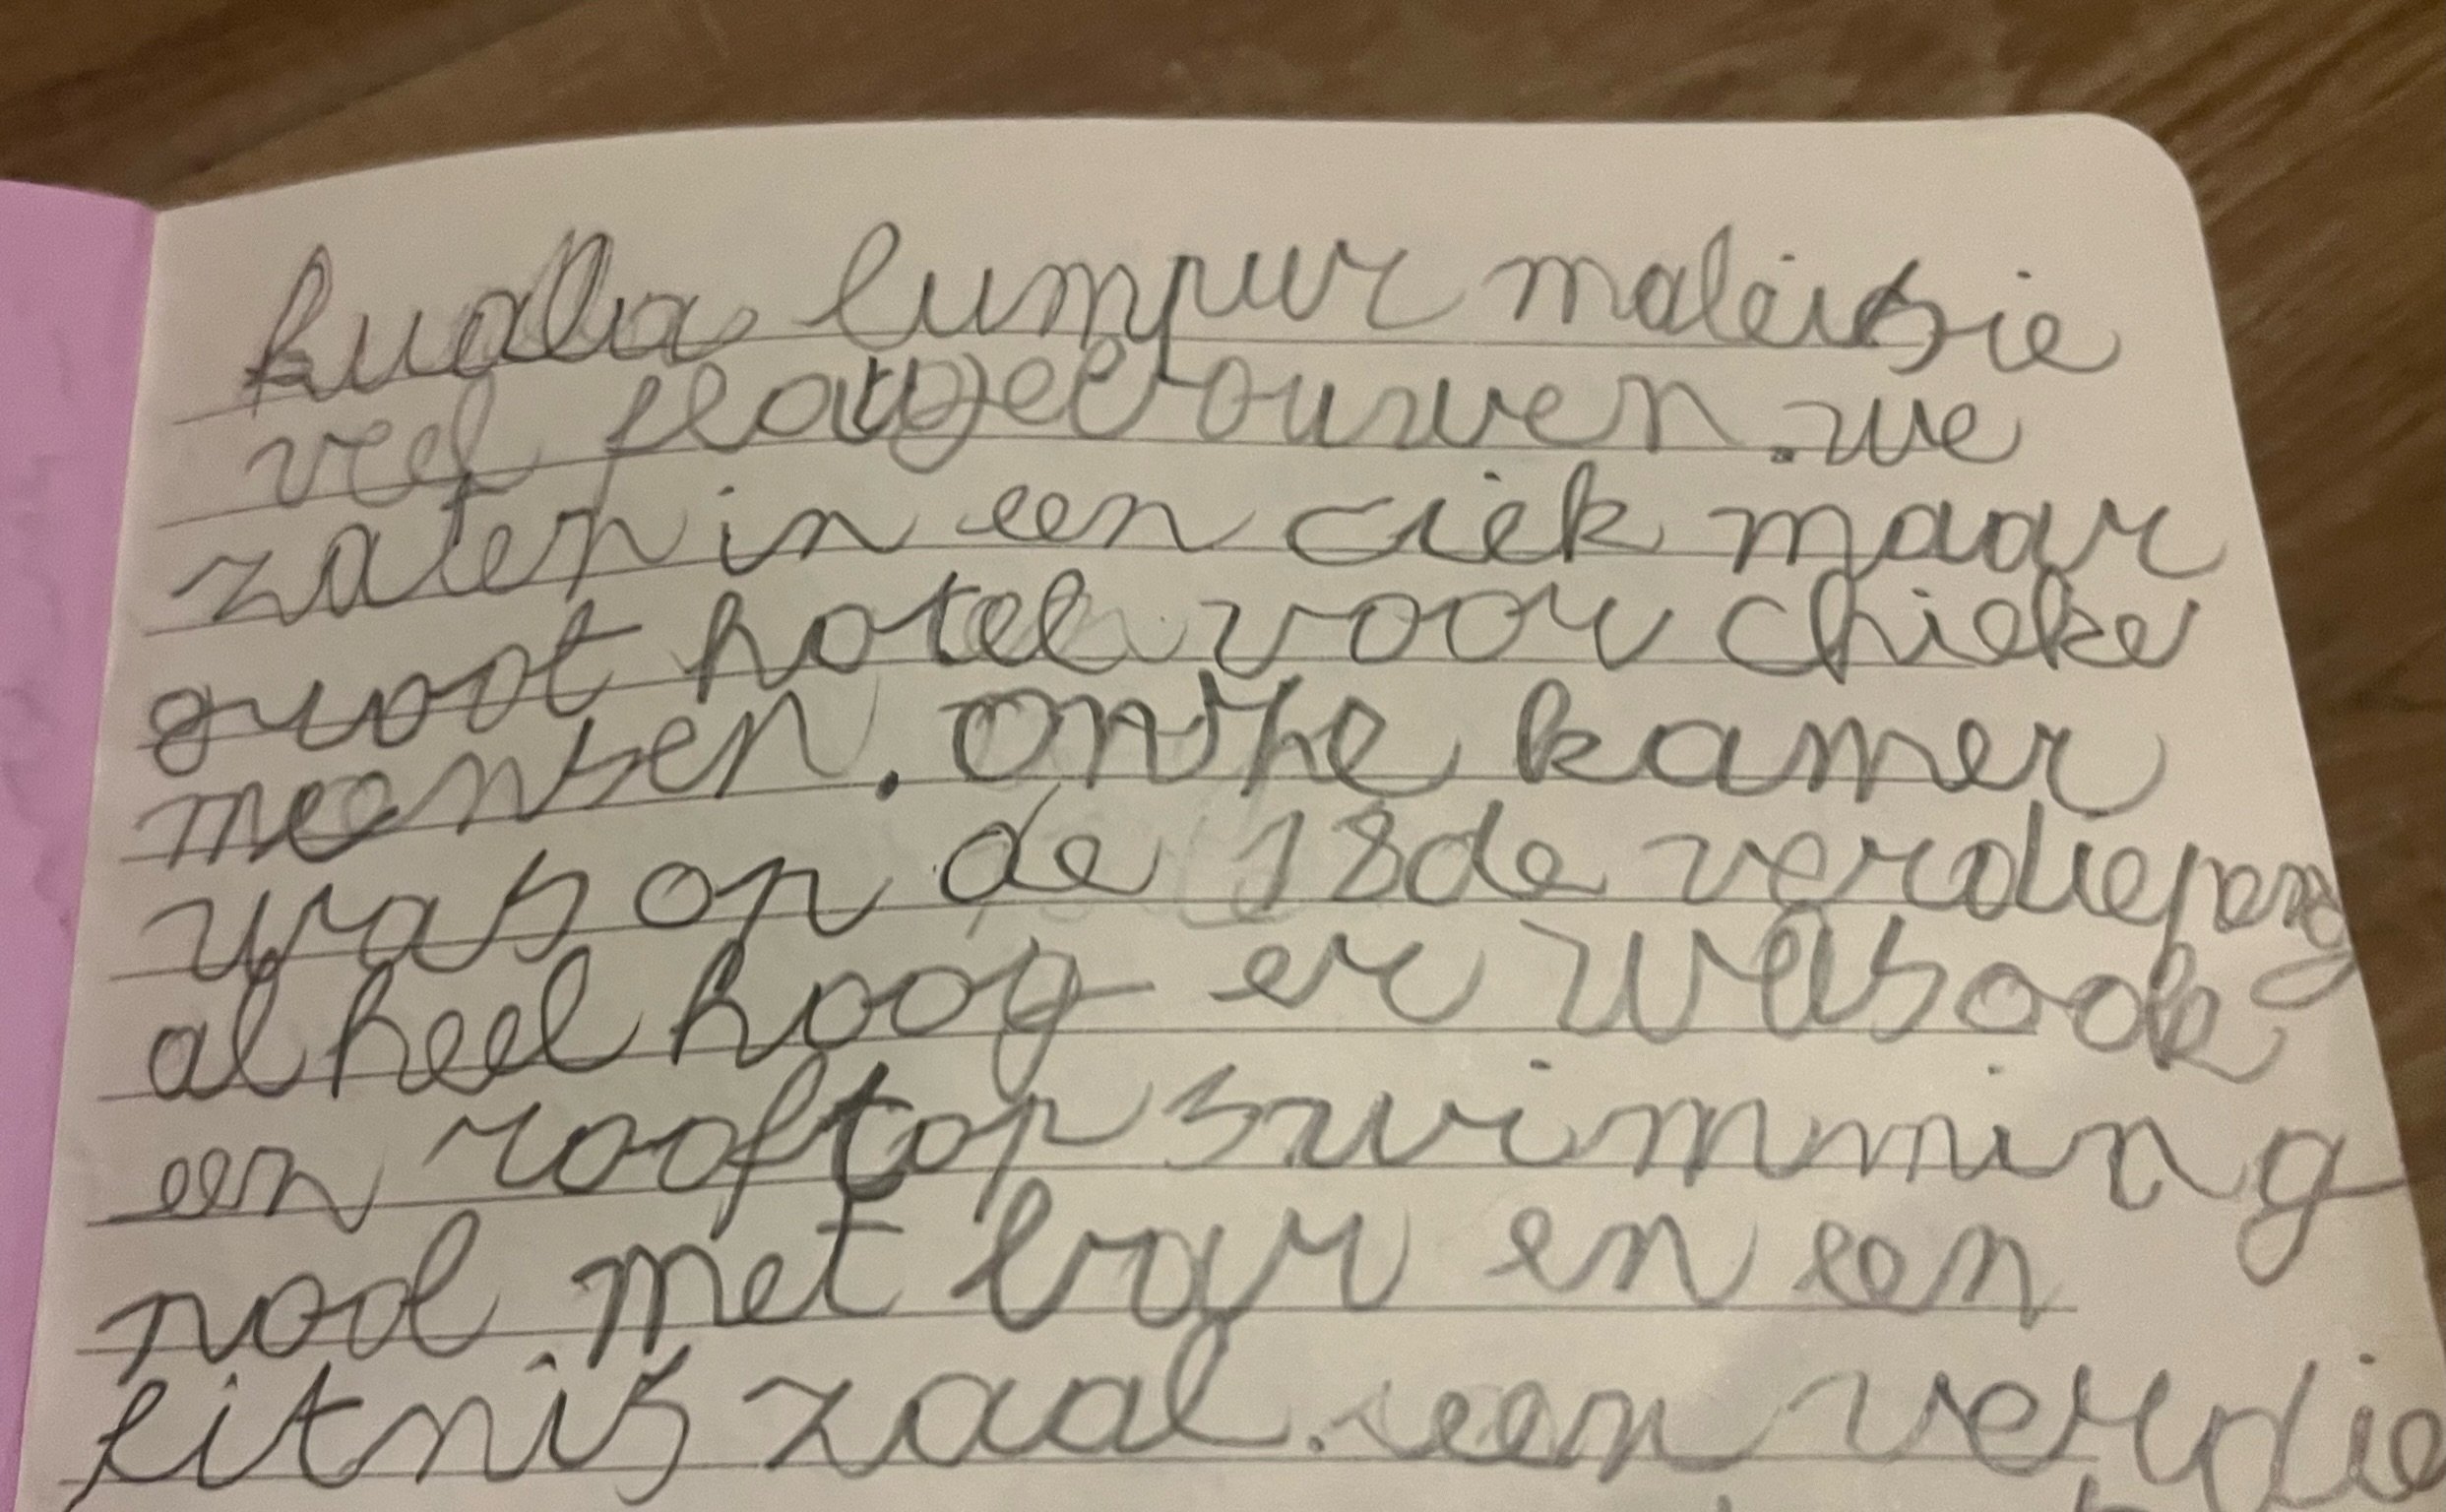 kualla lumpur maleisie
veel flatgebouwen. we
zaten in een ciek maar
groot hotel voor chieke
meensen. onze kamer
was op de 18de verdiepeng
al heel hoog er was ook
een rooftop swimming
pool met bar en een
fitnis zaal. een verdie